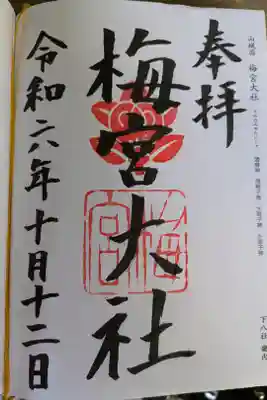 山城国 梅宮大社
奉拝
梅宮大社
梅宮
令和六年十月十二日